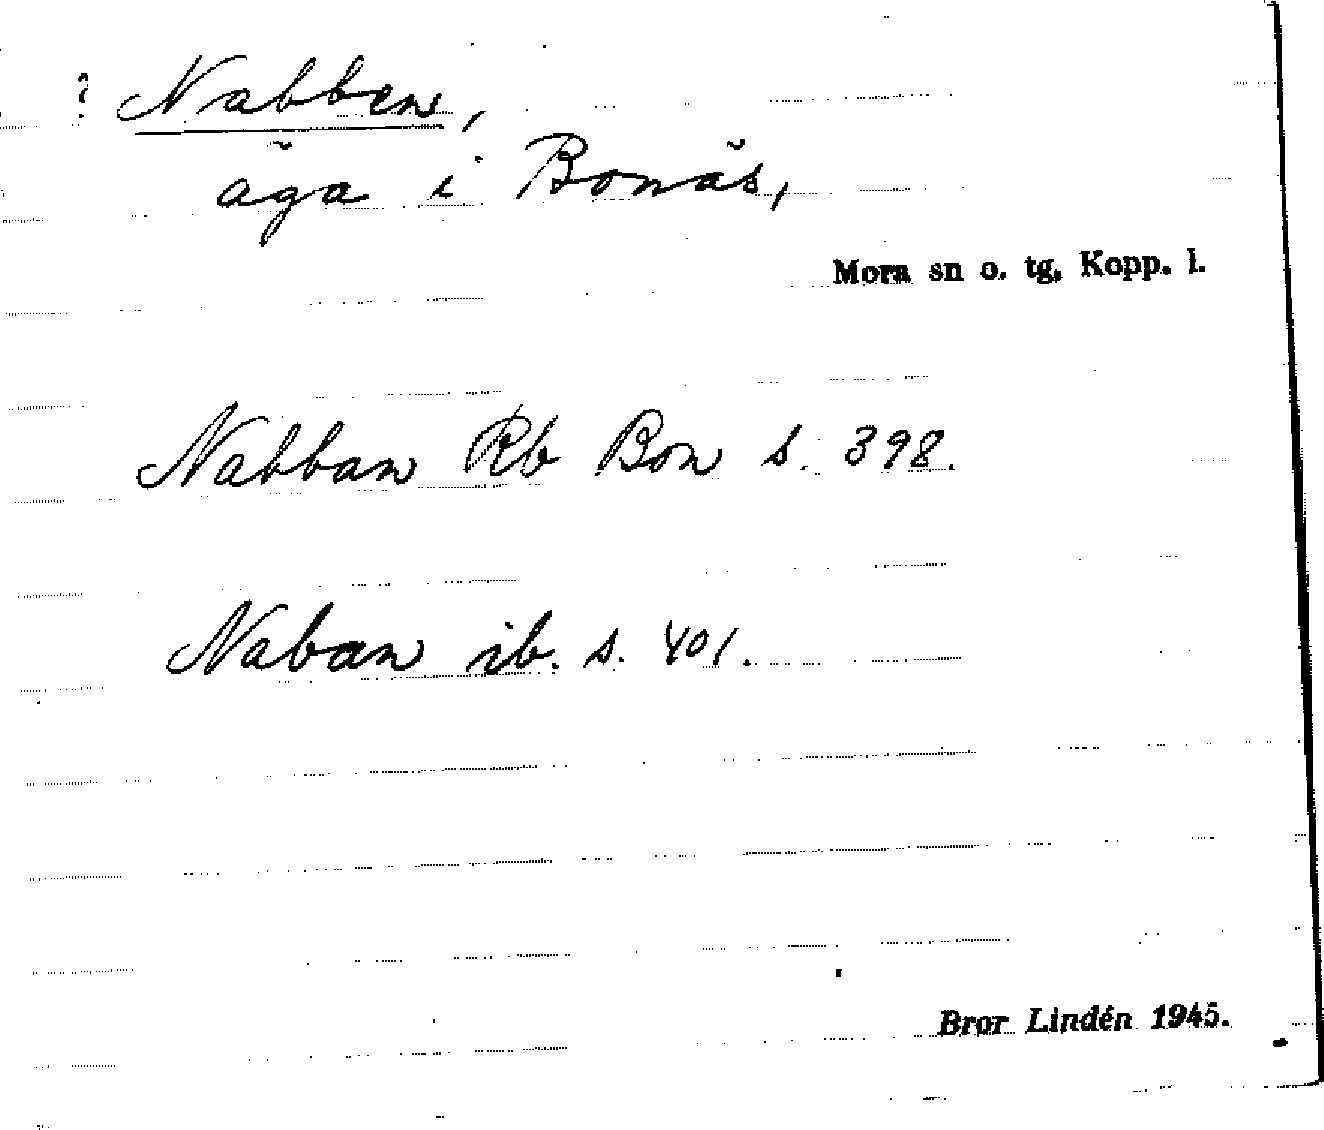 ? Nabben,
äga i Bonäs,
Mora sn o. tg, Kopp. l.
Nabban Rb Bon s. 398.
Naban ib. s. 401.
Bror Lindén 1945.